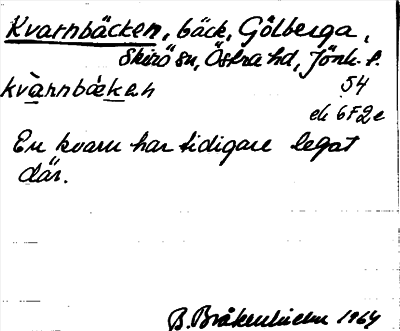 Kvarnbäcken, bäck, Gölberga,
Skirö sn, Östra hd, Jönk. l.
kvarnbäken 54
ek 6F2e
En kvarn har tidigare legat
där.
B. Bråkenhielm 1964